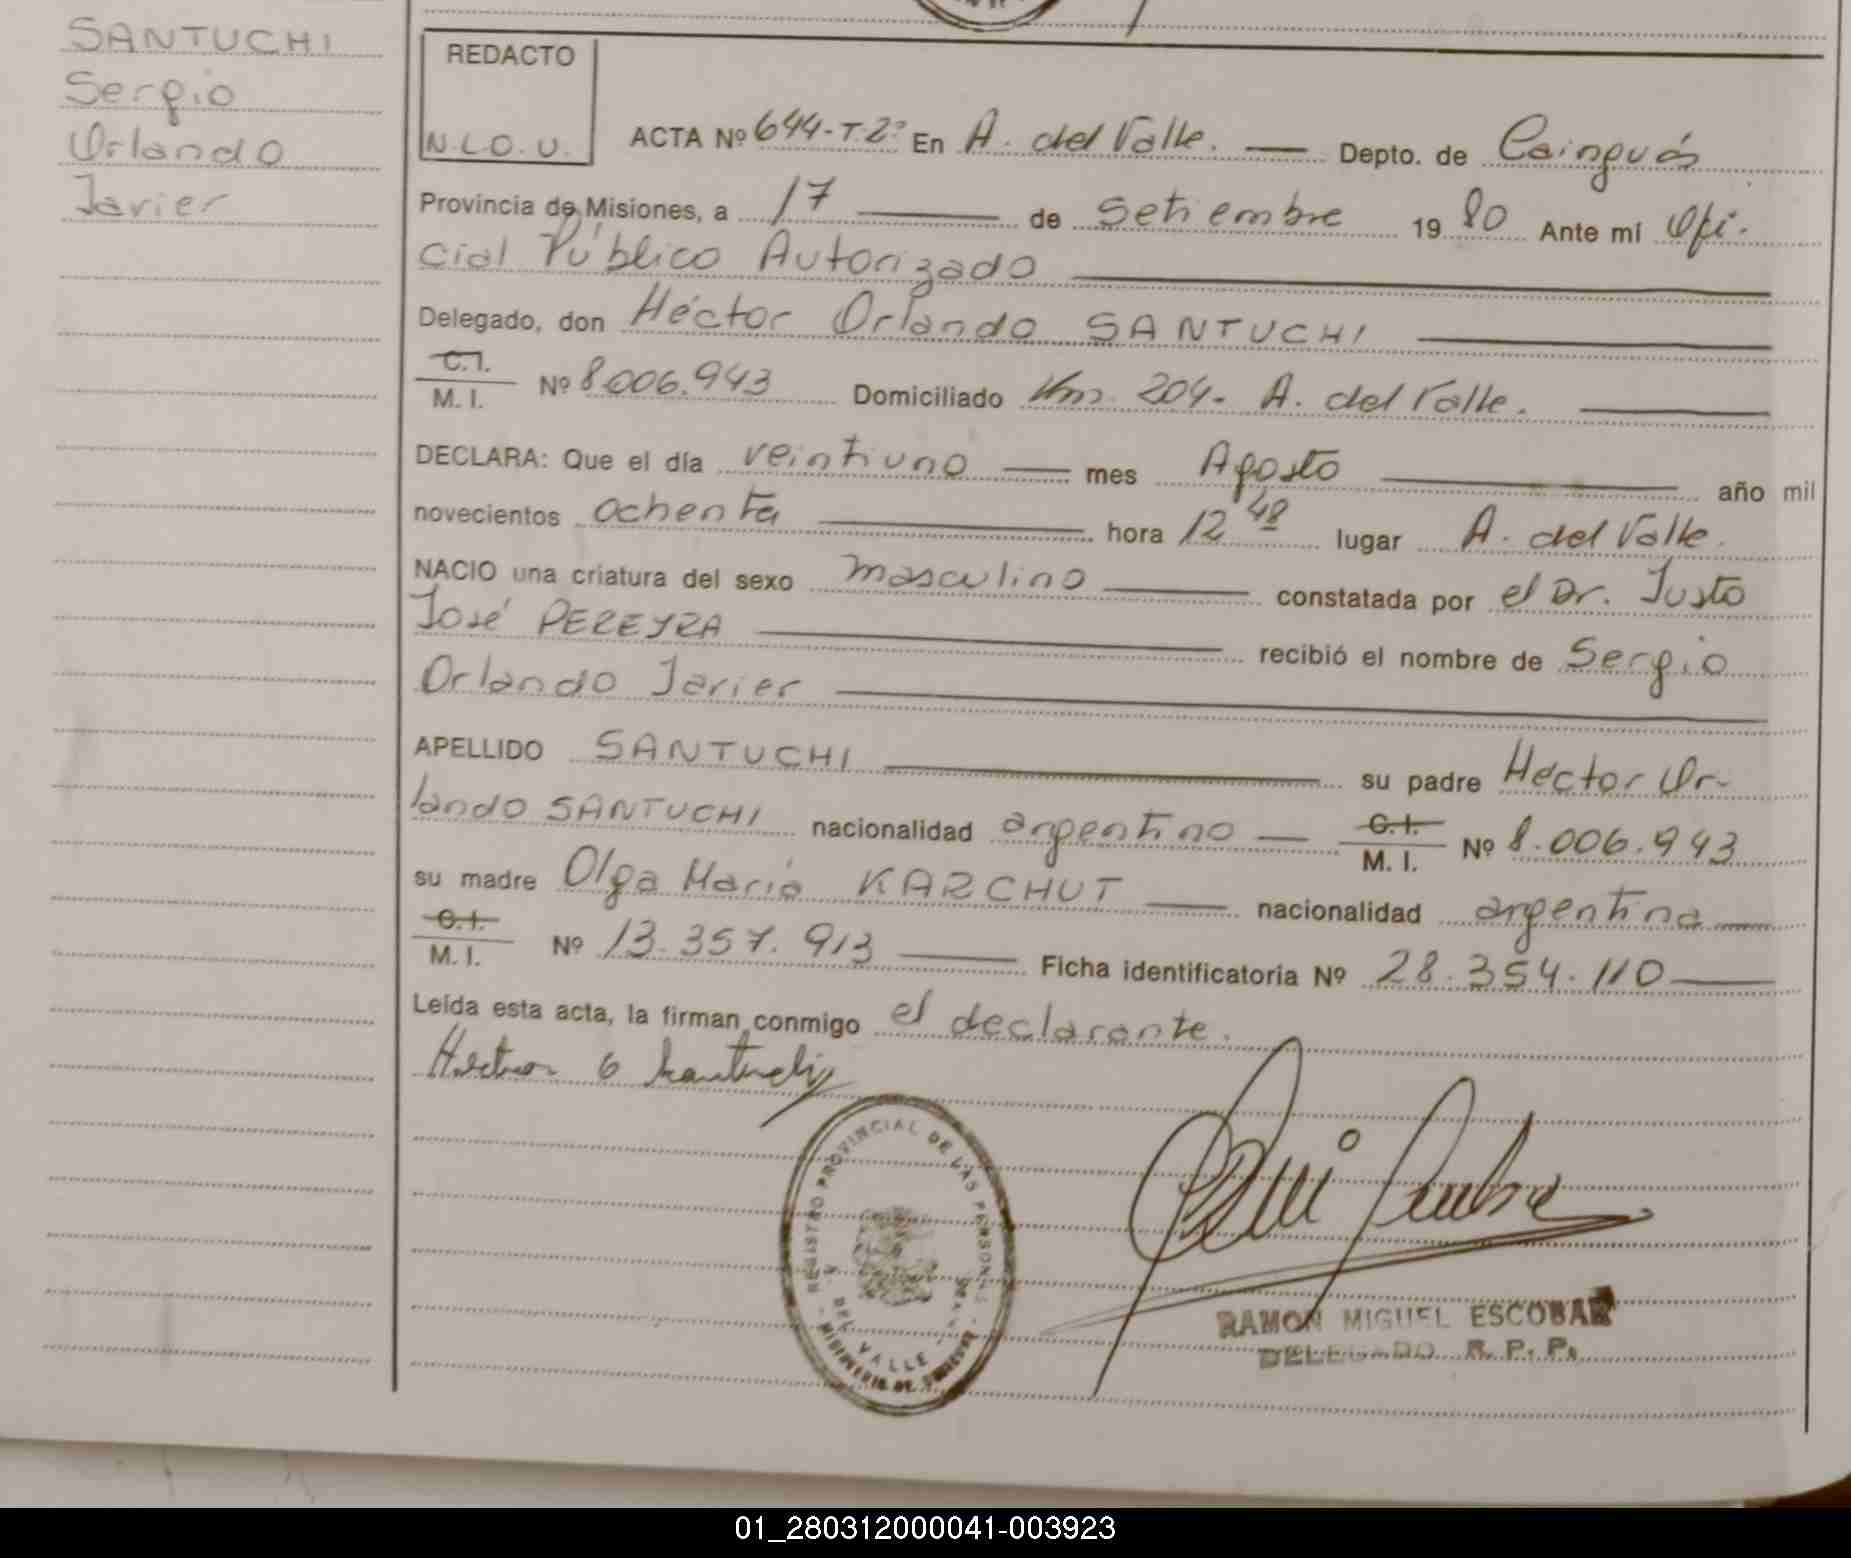 SANTUCHI
Sergio
Orlando
Javier
REDACTO
N.L.O.U.
ACTA Nº 644-T-2º En A. del Valle. Depto. de Cainguás
Provincia de Misiones, a 17 de Setiembre 1980 Ante mí Ofi-
cial Público Autorizado
Delegado, don Héctor Orlando SANTUCHI
C.I. M.I. Nº 8.006.943 Domiciliado Km. 204- A. del Valle.
DECLARA: Que el día veintiuno mes Agosto año mil
novecientos ochenta hora 12 48 lugar A. del Valle.
NACIO una criatura del sexo masculino constatada por el Dr. Justo
José PEREYRA recibió el nombre de Sergio
Orlando Javier
APELLIDO SANTUCHI su padre Héctor Or-
lando SANTUCHI nacionalidad argentino C.I. M.I. Nº 8.006.943
su madre Olga María KARCHUT nacionalidad argentina
C.I. M.I. Nº 13.357.913 Ficha identificatoria Nº 28.354.110
Leída esta acta, la firman conmigo el declarante.
Hector O Santuchi
REGISTRO PROVINCIAL DE LAS PERSONAS
A. DEL VALLE
RAMON MIGUEL ESCOBAR
DELEGADO R. P. P.
01_280312000041-003923